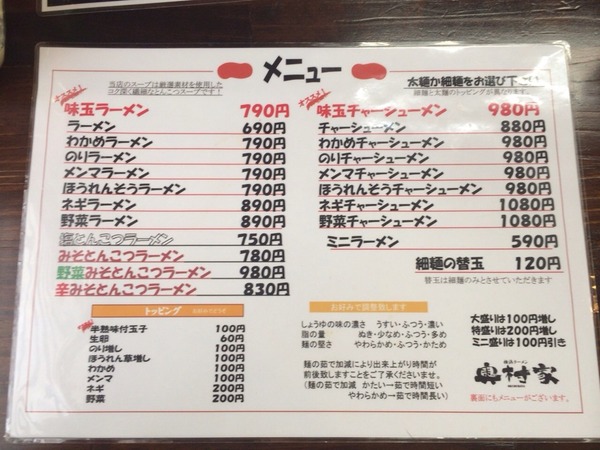 メニュー
当店のスープは厳選素材を使用した
コク深く繊細なとんこつスープです!
太麺か細麺をお選び下さい
細麺と太麺のトッピングが異なります。
オススメ!
味玉ラーメン 790円
ラーメン 690円
わかめラーメン 790円
のりラーメン 790円
メンマラーメン 790円
ほうれんそうラーメン 790円
ネギラーメン 890円
野菜ラーメン 890円
塩とんこつラーメン 750円
みそとんこつラーメン 780円
野菜みそとんこつラーメン 980円
辛みそとんこつラーメン 830円
オススメ!
味玉チャーシューメン 980円
チャーシューメン 880円
わかめチャーシューメン 980円
のりチャーシューメン 980円
メンマチャーシューメン 980円
ほうれんそうチャーシューメン 980円
ネギチャーシューメン 1080円
野菜チャーシューメン 1080円
ミニラーメン 590円
細麺の替玉 120円
替玉は細麺のみとさせていただきます
トッピング
半熟味付玉子 100円
生卵 60円
のり増し 100円
ほうれん草増し 100円
わかめ 100円
メンマ 100円
ネギ 200円
野菜 200円
お好みで調整致します
しょうゆの味の濃さ うすい・ふつう・濃い
脂の量 ぬき・少なめ・ふつう・多め
麺の堅さ やわらかめ・ふつう・かため
麺の茹で加減により出来上がり時間が
前後致しますことをご了承くださいませ。
(麺の茹で加減 かたい→茹で時間短い
やわらかめ→茹で時間長い)
大盛りは100円増し
特盛りは200円増し
ミニ盛りは100円引き
横浜ラーメン
奥村家
裏面にもメニューがございます。